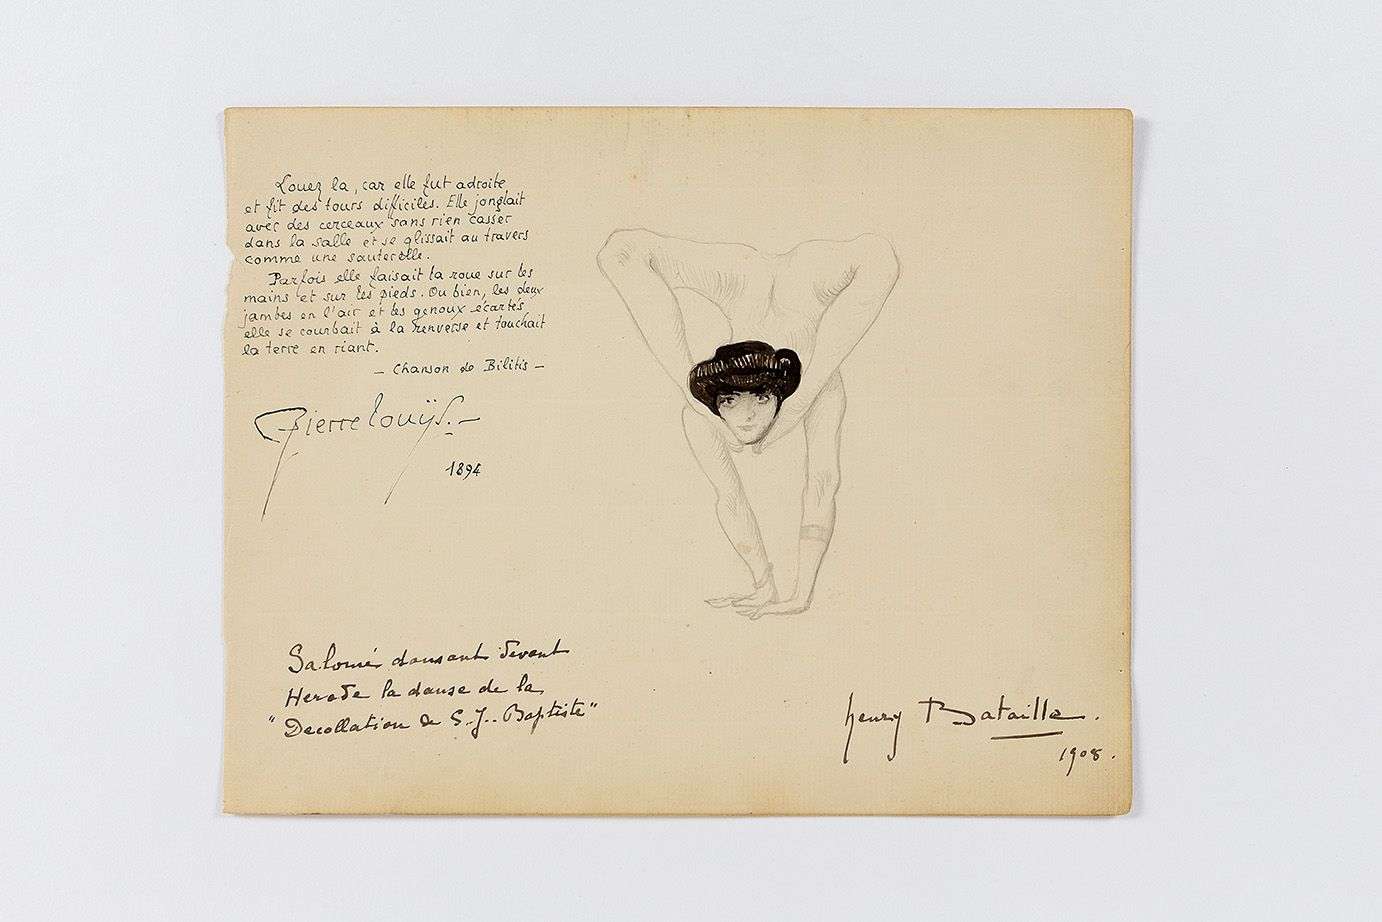 Louez la, car elle fut adroite
et fit des tours difficiles. Elle jonglait
avec des cerceaux sans rien casser
dans la salle et se glissait au travers
comme une sauterelle.
Parfois elle faisait la roue sur les
mains et sur les pieds. Ou bien, les deux
jambes en l'air et les genoux écartés
elle se courbait à la renverse et touchait
la terre en riant.
— Chanson de Bilitis —
Pierre Louÿs. —
1894
Salomé dansant devant
Herode la danse de la
"Decollation de S.J. Baptiste"
henry Bataille.
1908.